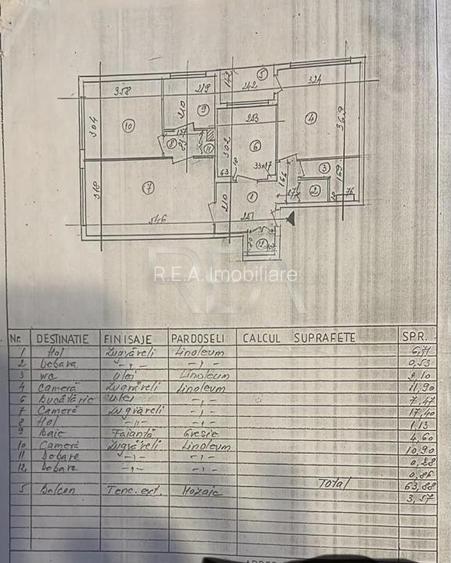 142
5
358
219
242
324
304
210
9
253
4
369
10
8
157
11
302
6
3
169
7
310
63
210
1
166
2
76
546
251
12
R.E.A. Imobiliare
Nr. DESTINATIE FINISAJE PARDOSELI CALCUL SUPRAFETE SPR.
1 Hol Zugrăveli Linoleum 6,71
2 Debara -„- -„- 0,53
3 WC Ulei Linoleum 2,10
4 Cameră Zugrăveli Linoleum 11,90
6 Bucătărie Ulei -„- 7,47
7 Cameră Zugrăveli -„- 17,40
8 Hol -„- -„- 1,13
9 Baie Faianță Gresie 4,60
10 Cameră Zugrăveli Linoleum 10,90
11 Debara -„- -„- 0,28
12 Debara -„- -„- 0,86
Total 63,88
5 Balcon Tenc. ext. Mozaic 3,57